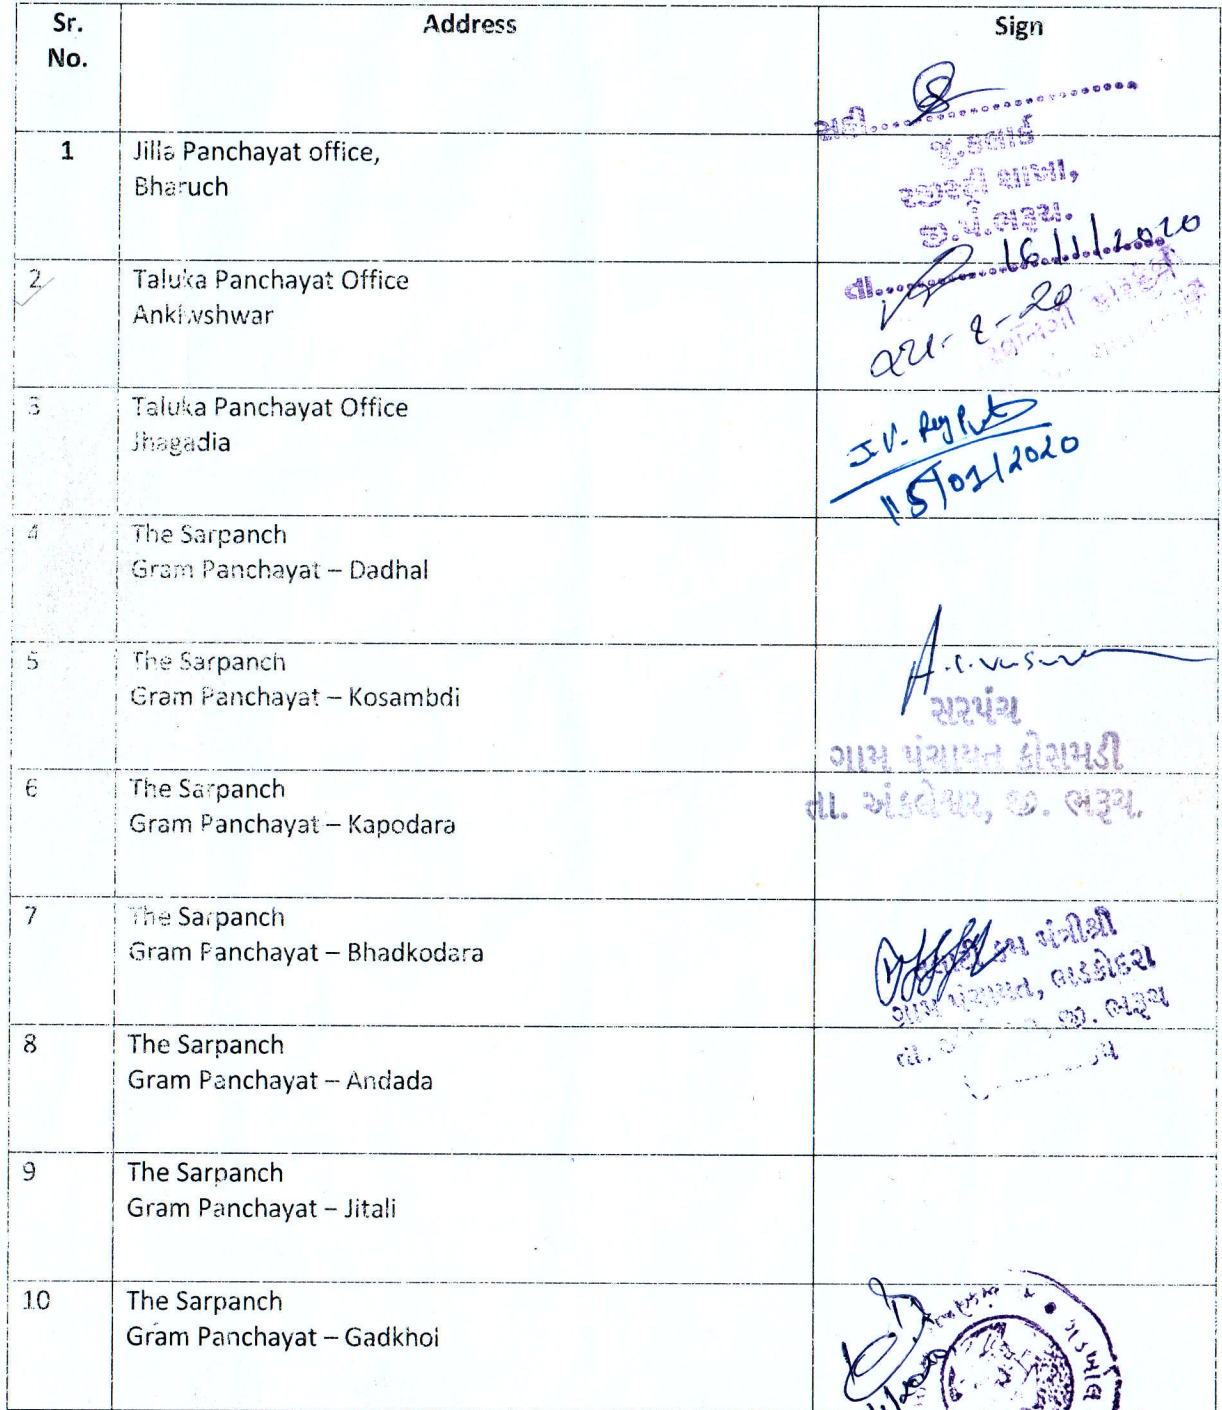 Sr. No. Address Sign
સહી
જુ.કલાર્ક
રજીસ્ટ્રી શાખા,
જી.પં.ભરૂચ.
તા. 16/1/2020
1 Jilla Panchayat office,
Bharuch
2 Taluka Panchayat Office
Anklwshwar
3 Taluka Panchayat Office
Jhagadia
15/01/2020
4 The Sarpanch
Gram Panchayat – Dadhal
5 The Sarpanch
Gram Panchayat – Kosambdi
સરપંચ
ગામ પંચાયત કોસમડી
તા. અંકલેશ્વર, જી. ભરૂચ.
6 The Sarpanch
Gram Panchayat – Kapodara
7 The Sarpanch
Gram Panchayat – Bhadkodara
મંત્રીશ્રી
ગ્રામ પંચાયત, ભડકોદરા
જી. ભરૂચ
8 The Sarpanch
Gram Panchayat – Andada
9 The Sarpanch
Gram Panchayat – Jitali
10 The Sarpanch
Gram Panchayat – Gadkhol
ગડખોલ